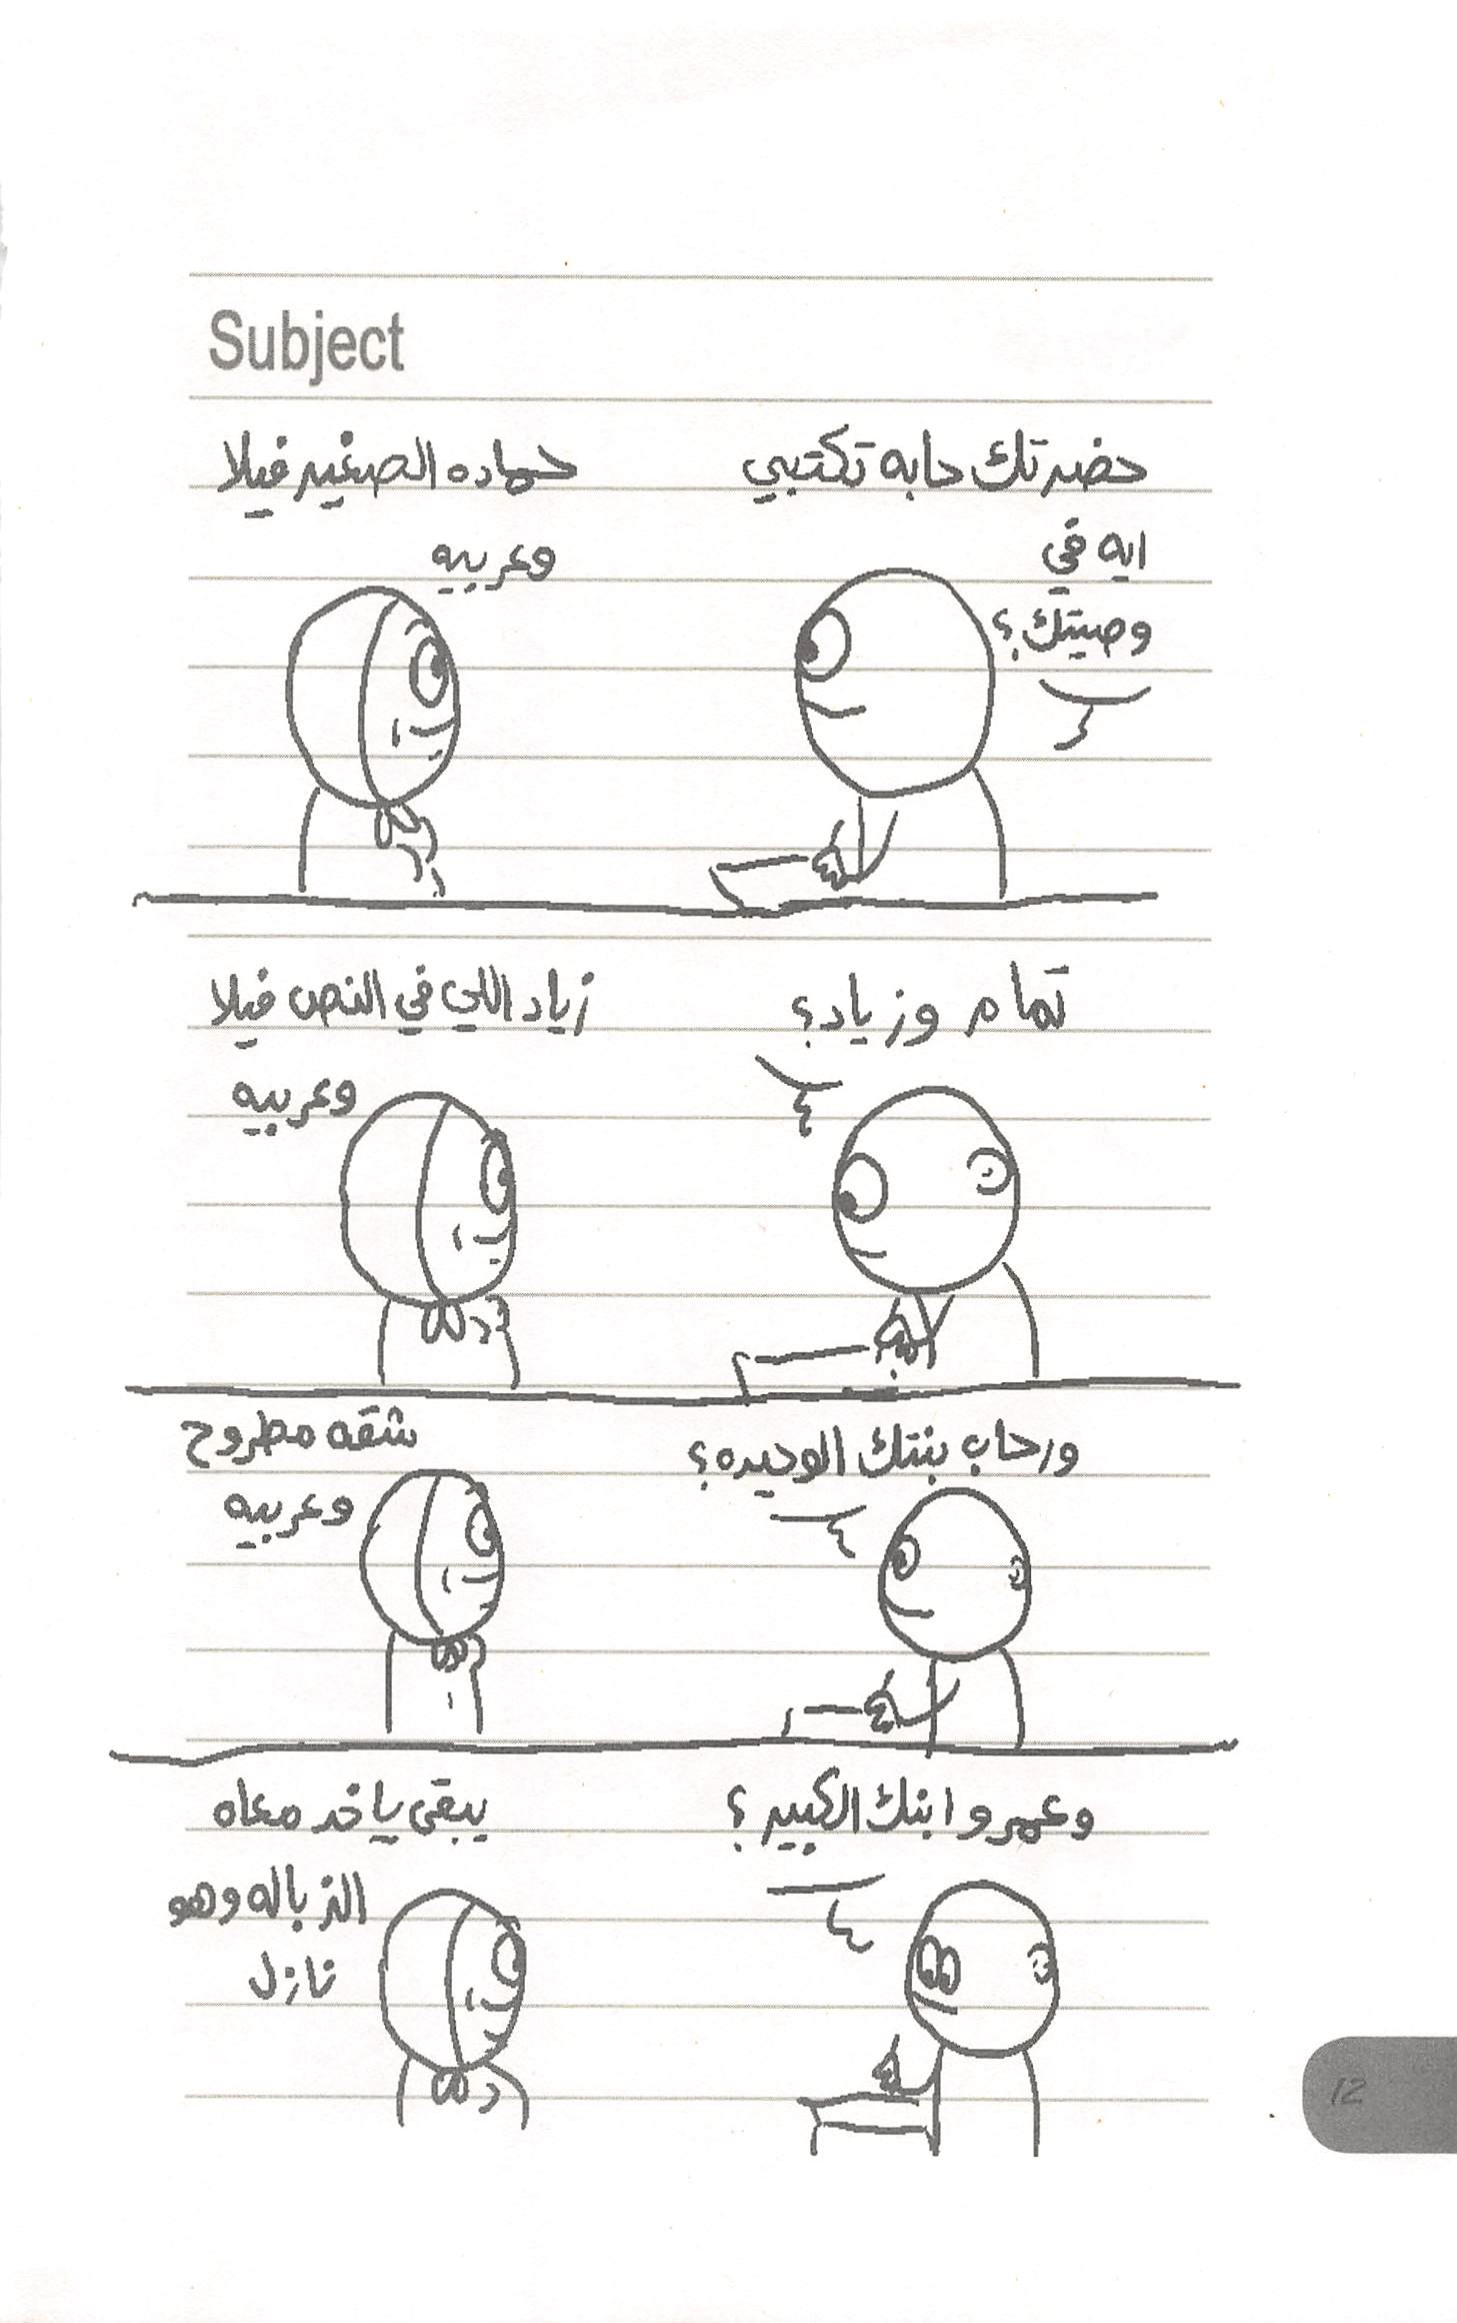 Subject
حضرتك حابه تكتبي
ايه في
وصيتك؟
حماده الصغير فيلا
وعربيه
تمام وزياد؟
زياد اللي في النص فيلا
وعربيه
ورحاب بنتك الوحيده؟
شقه مطروح
وعربيه
وعمرو ابنك الكبير؟
يبقى ياخد معاه
الزباله وهو
نازل
12